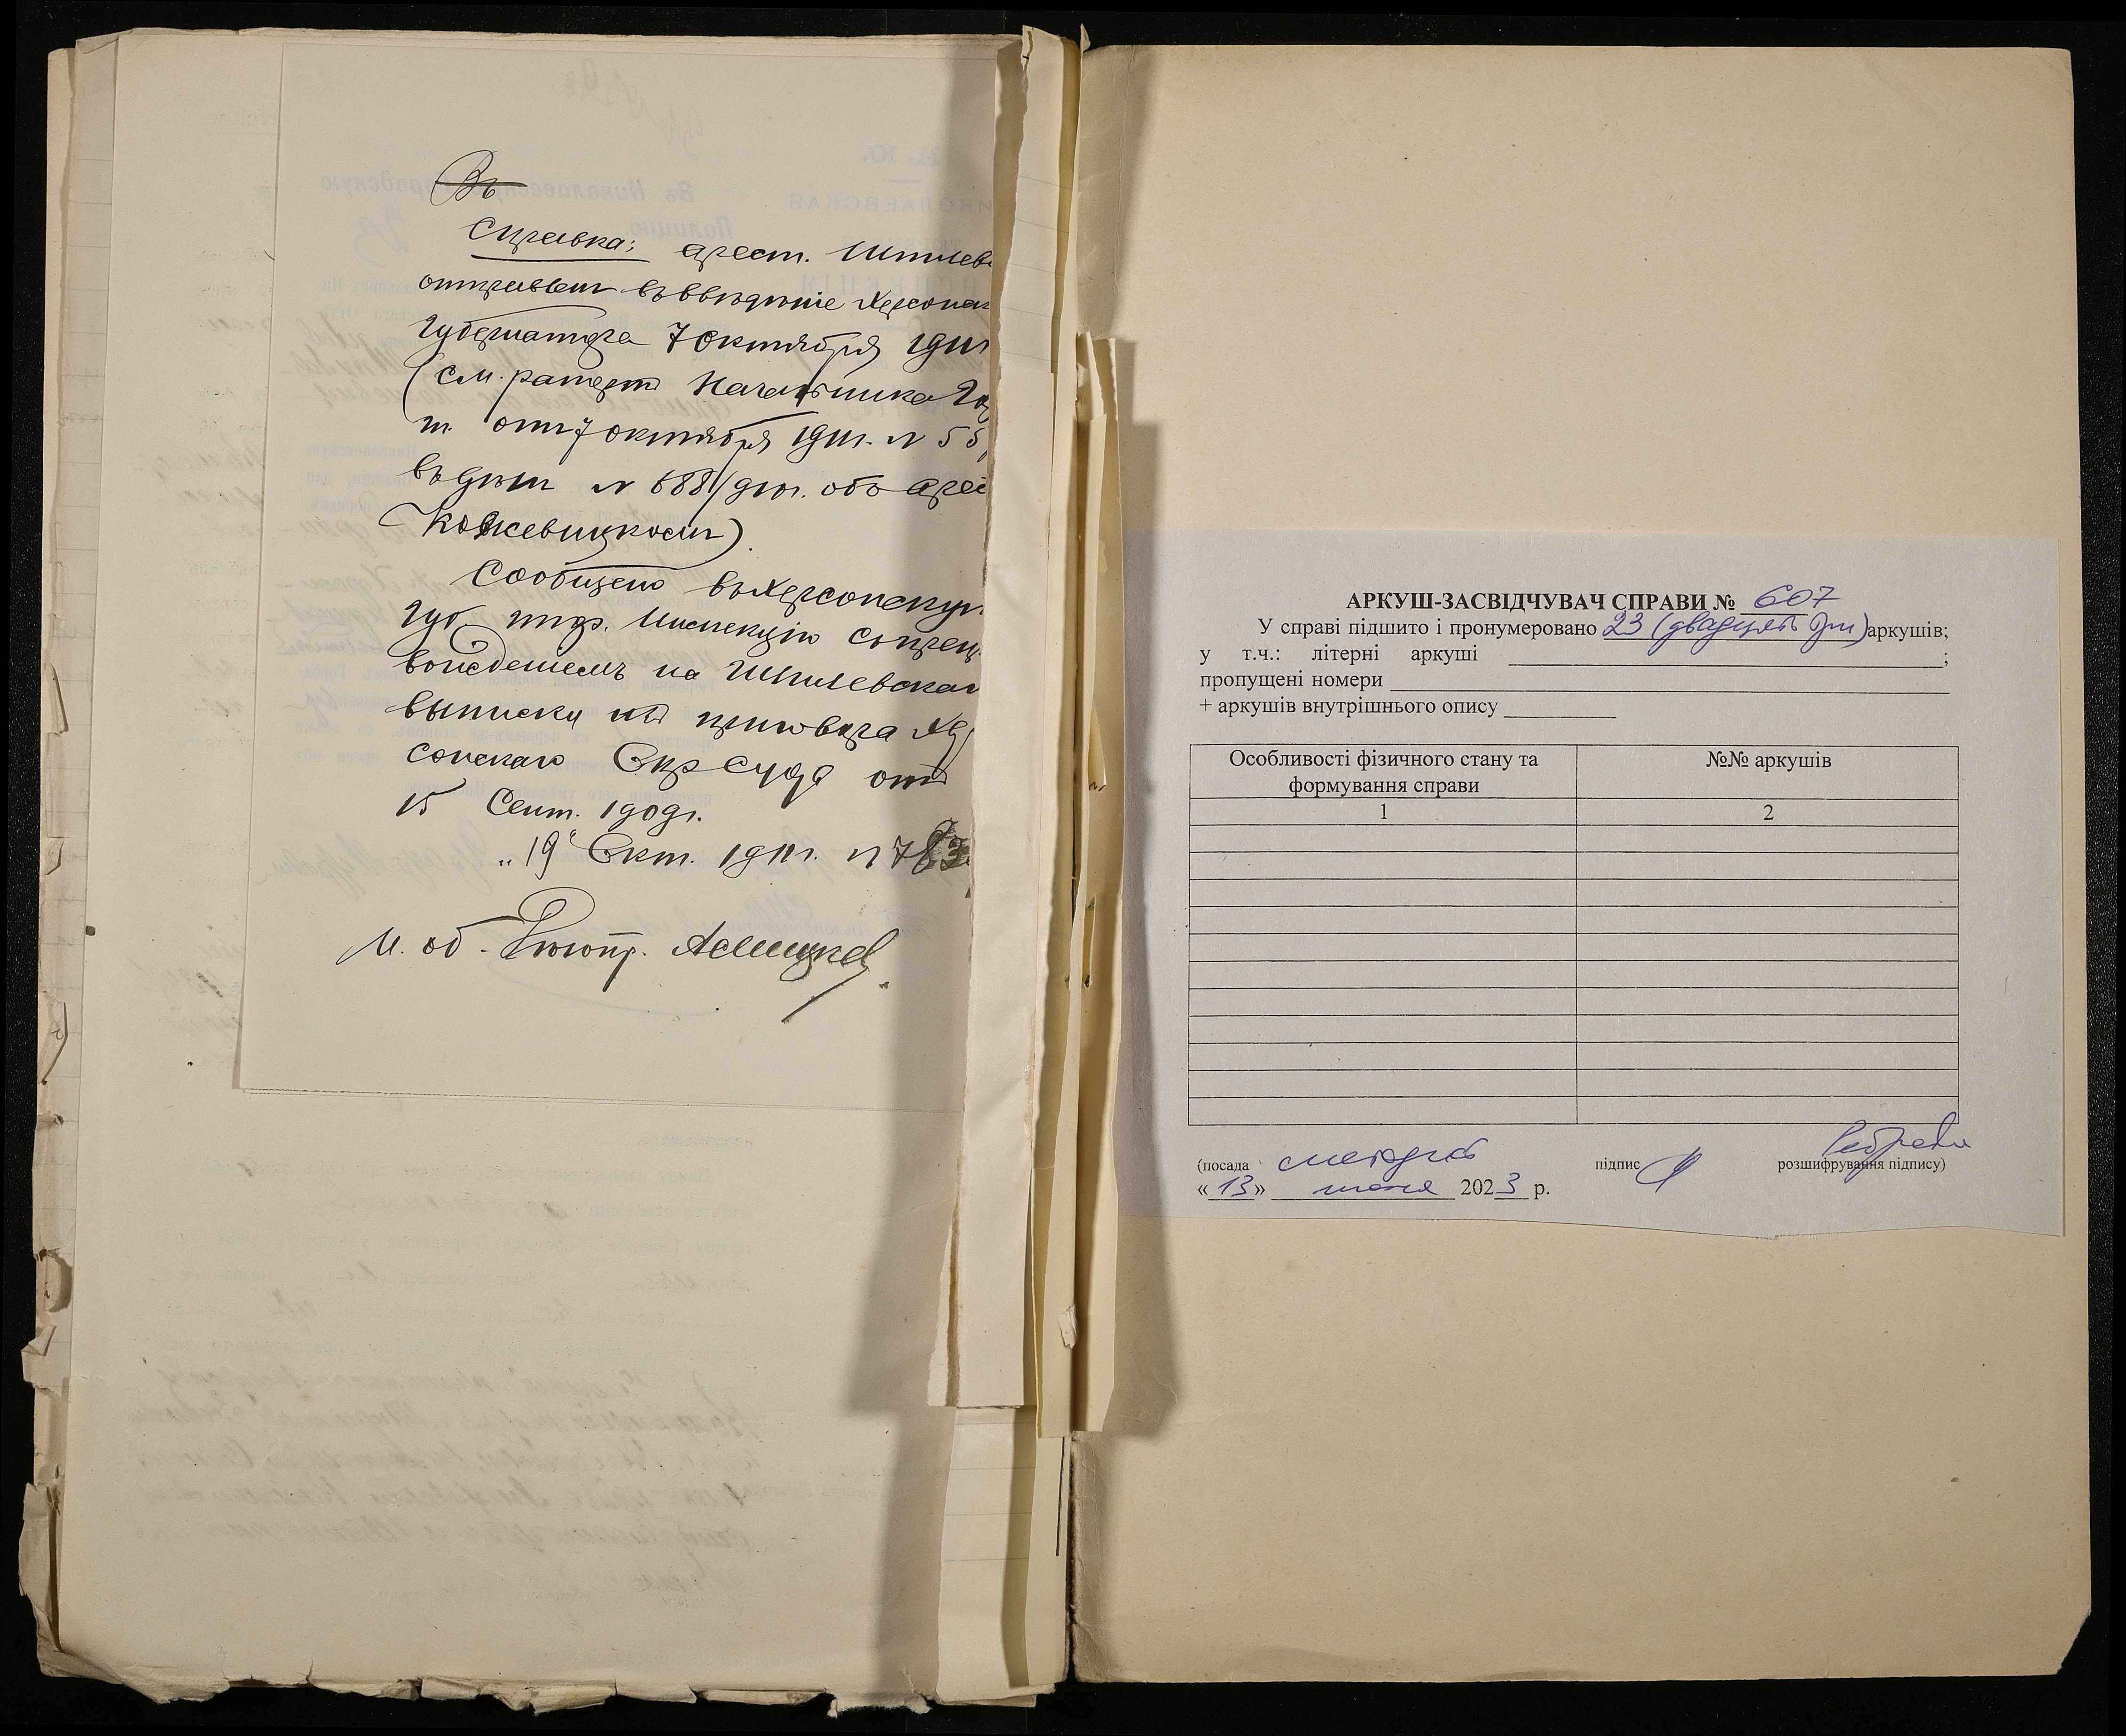 Въ
Справка: арест. Шпилев
отправлен въ вѣдѣніе Херсонск
Губернатора 7 октября 1911
(см. рапорт Начальника
т. отъ 7 октября 1911 г. №
въ дѣлѣ № 688/ 910г. объ арес
Кожевицком)
Сообщено въ Херсонскую
Губ. тюр. Инспекцію съ преп
вожденіемъ на Шпилевскаг
выписки изъ приговора Хер
сонскаго Окр Суда отъ
15 Сент. 1909г.
„19“ Окт. 1911г. № 783
И. об. Дѣлопр.
АРКУШ-ЗАСВІДЧУВАЧ СПРАВИ № 607
У справі підшито і пронумеровано 23 (двадцять три) аркушів;
у т.ч.: літерні аркуші ;
пропущені номери
+ аркушів внутрішнього опису
Особливості фізичного стану та формування справи
№№ аркушів
1
2
(посада
підпис
розшифрування підпису)
«13» 2023 р.